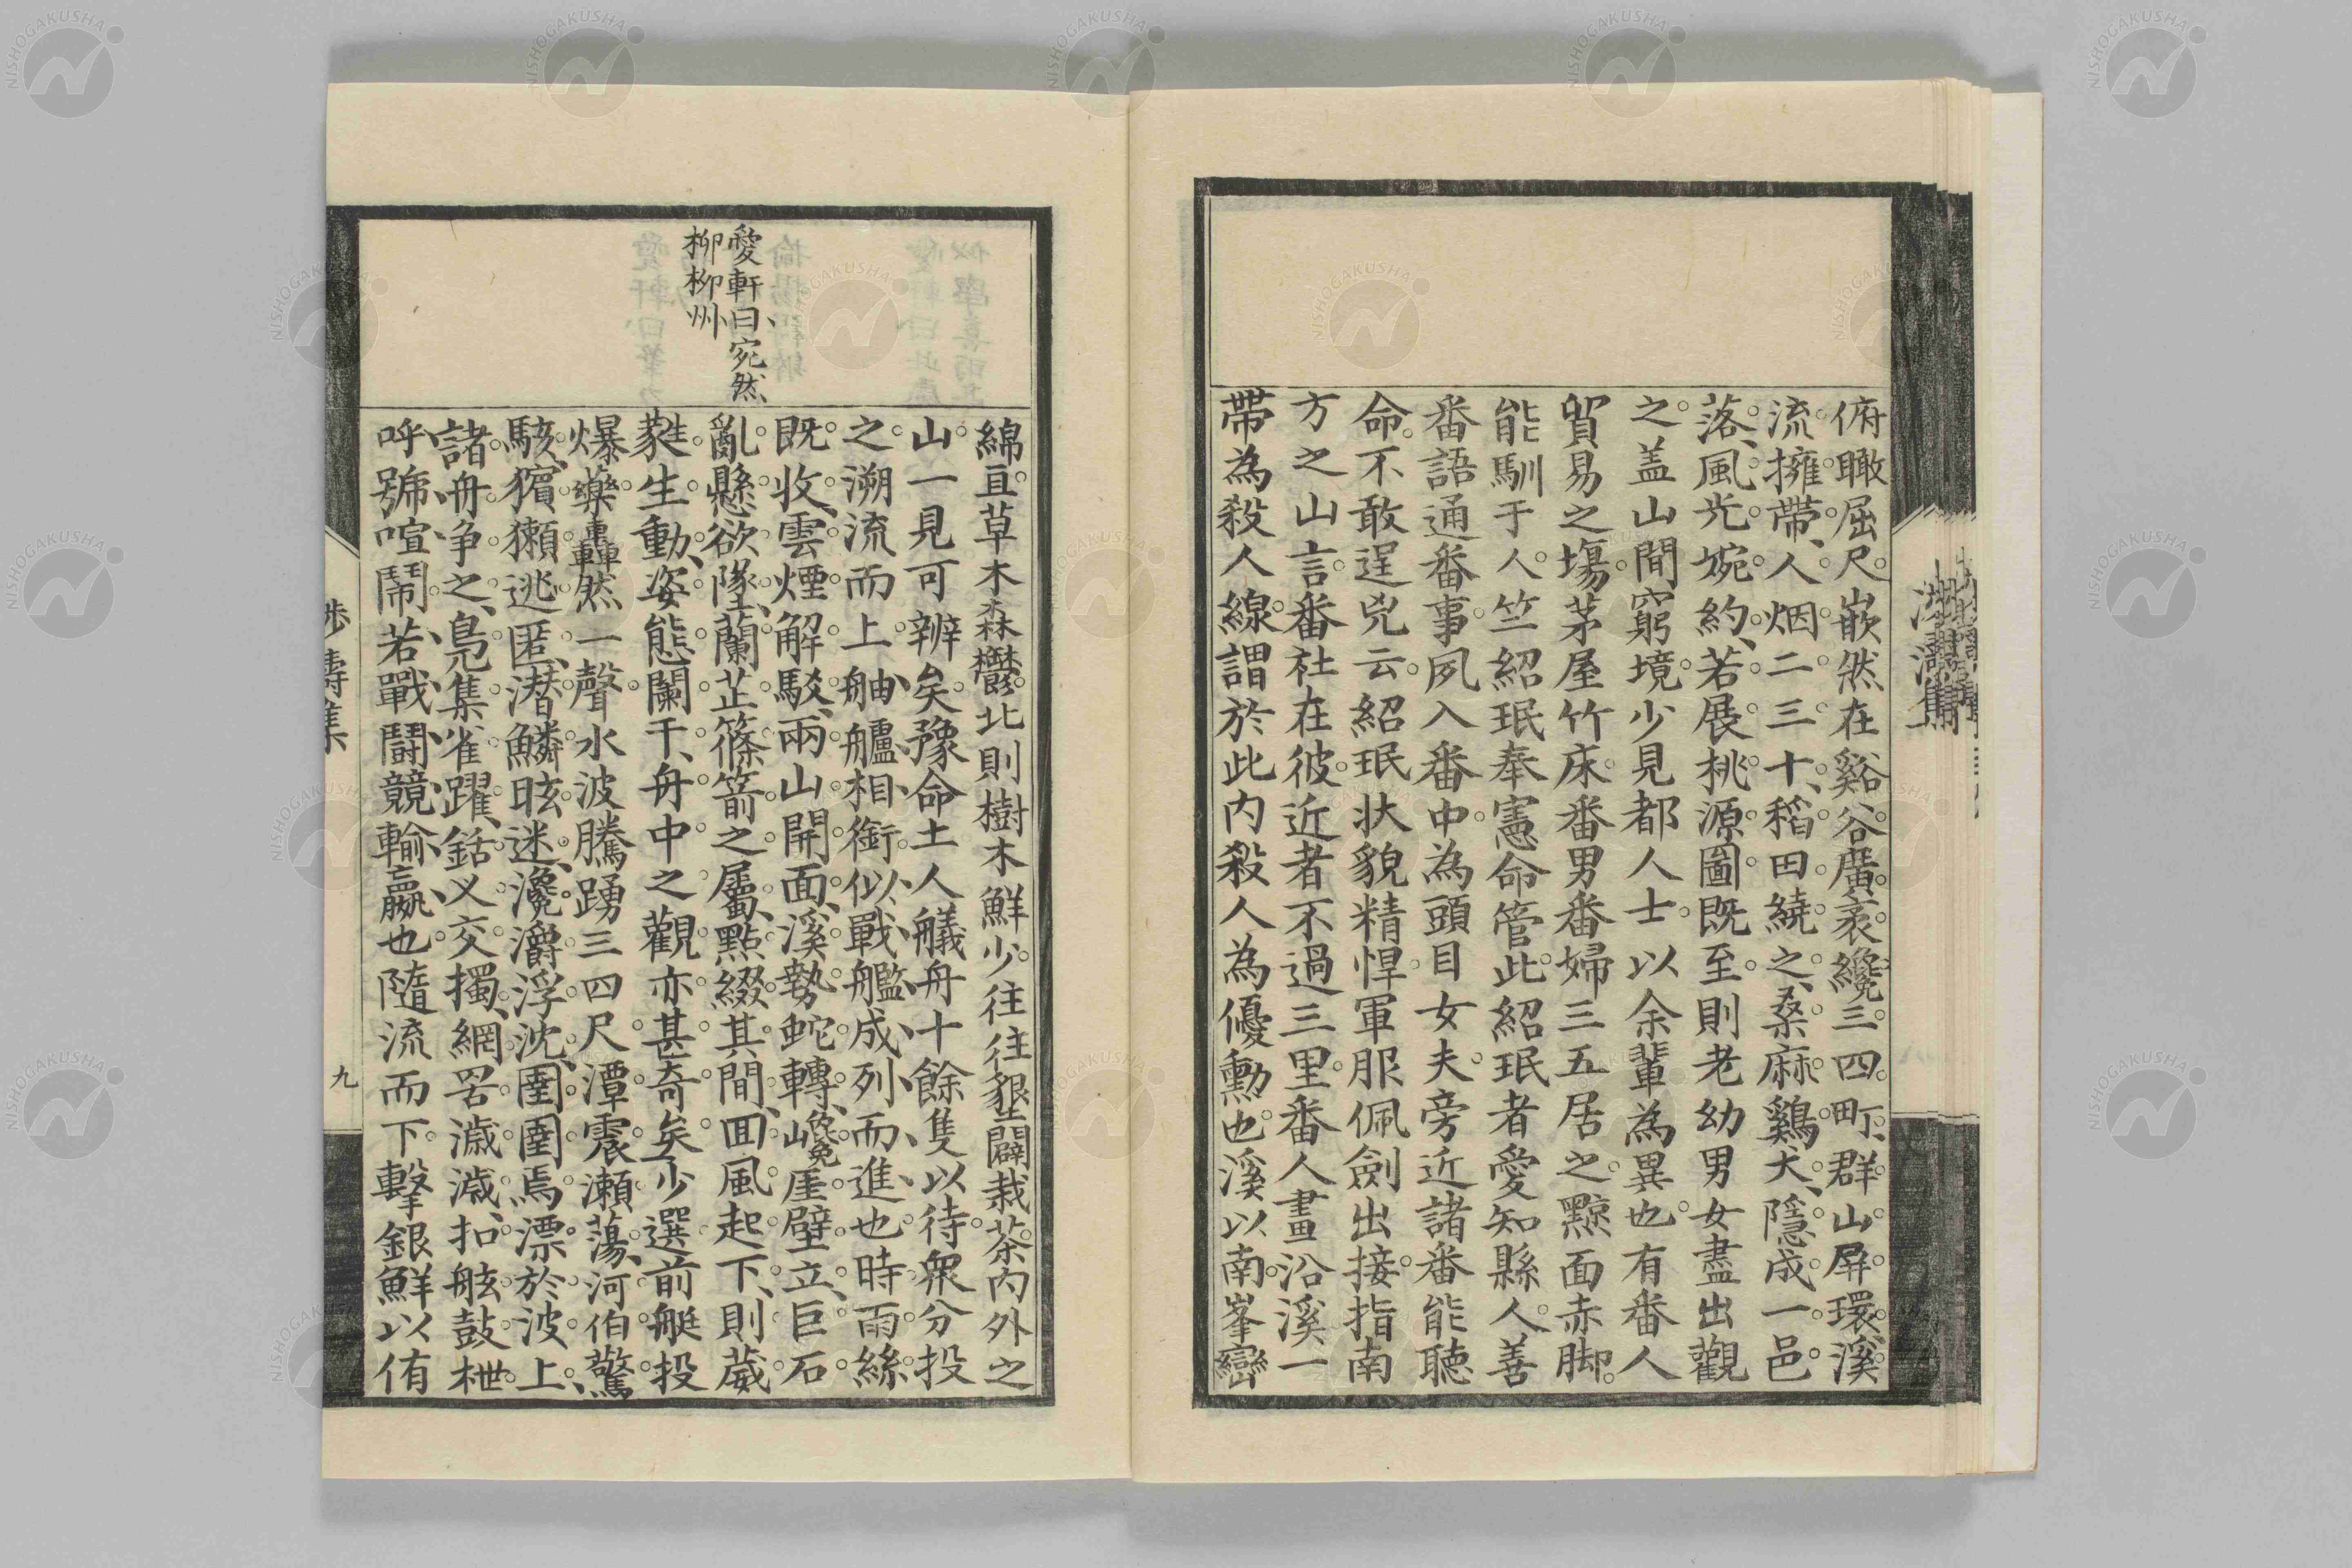 俯瞰屈尺嵌然在谿谷廣袤纔三四町群山屏環溪
流擁帶人烟二三十稻田繞之桑麻鷄犬隱成一邑
落風光婉約若展桃源圖既至則老幼男女盡出觀
之盖山間窮境少見都人士以余輩為異也有番人
貿易之塲茅屋竹床番男番婦三五居之黥面赤脚
能馴于人竺紹珉奉憲命管此紹珉者愛知縣人善
番語通番事夙入番中為頭目女夫旁近諸番能聴
命不敢逞兇云紹珉狀貌精悍軍服佩劍出接指南
方之山言番社在彼近者不過三里番人畫沿溪一
帶為殺人線謂於此内殺人為優勳也溪以南峯巒
綿亘草木森欝北則樹木鮮少往往墾闢栽茶内外之
山一見可辨矣豫命土人艤舟十餘隻以待衆分投
之溯流而上舳艫相銜似戰艦成列而進也時雨絲
既收雲煙解駁兩山開面溪勢蛇轉巉崖壁立巨石
亂懸欲墜蘭芷篠箭之屬點綴其間囬風起下則葳
蕤生動姿態闌干舟中之觀亦甚奇矣少選前艇投
爆藥轟然一聲水波騰踴三四尺潭震瀬蕩河伯驚
駭獱獺逃匿潛鱗眩迷瀺灂浮沈圉圉焉漂於波上
諸舟争之鳬集雀躍銛乂交擉網罟濊濊扣舷鼓枻
呼號喧鬧若戰鬪競輸嬴也隨流而下擊銀鮮以侑
愛軒曰宛然
柳柳州
九
NISHOGAKUSHA